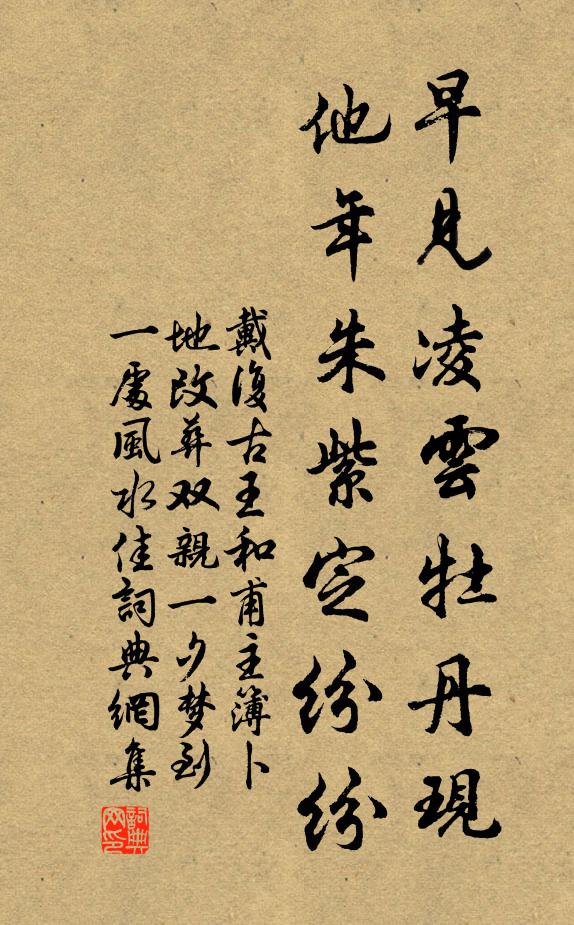 早見凌雲牡丹現
他年朱紫定紛紛
戴復古王和甫主簿卜
地改葬双親一夕梦到
一處風水佳詞典網集
詞典
网印